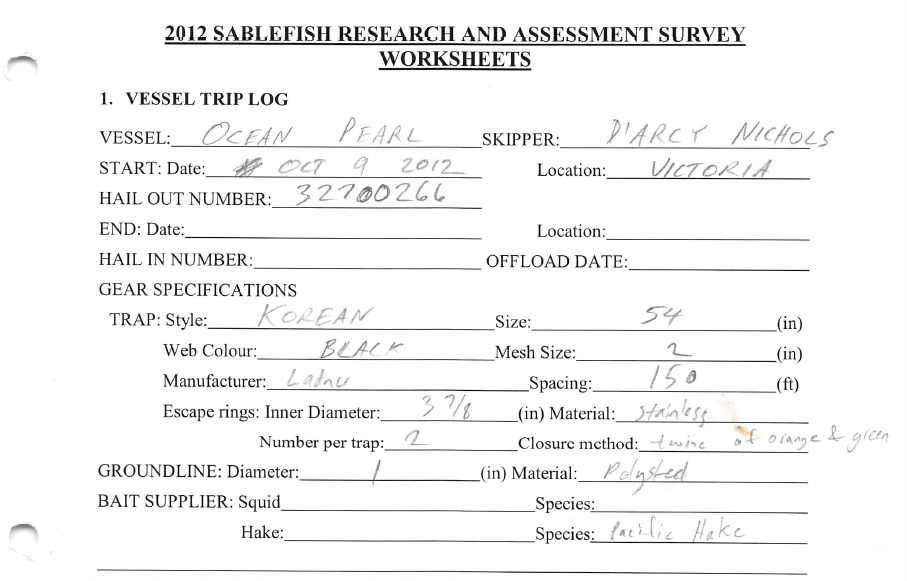 2012 SABLEFISH RESEARCH AND ASSESSMENT SURVEY
WORKSHEETS
1. VESSEL TRIP LOG
VESSEL: OCEAN PEARL SKIPPER: D'ARCY NICHOLS
START: Date: OCT 9 2012 Location: VICTORIA
HAIL OUT NUMBER: 32700266
END: Date: Location:
HAIL IN NUMBER: OFFLOAD DATE:
GEAR SPECIFICATIONS
TRAP: Style: KOREAN Size: 54 (in)
Web Colour: BLACK Mesh Size: 2 (in)
Manufacturer: Spacing: 150 (ft)
Escape rings: Inner Diameter: 3 7/8 (in) Material: Stainless
Number per trap: 2 Closure method: twine of orange & green
GROUNDLINE: Diameter: 1 (in) Material: Polysteel
BAIT SUPPLIER: Squid Species:
Hake: Species: Pacific Hake